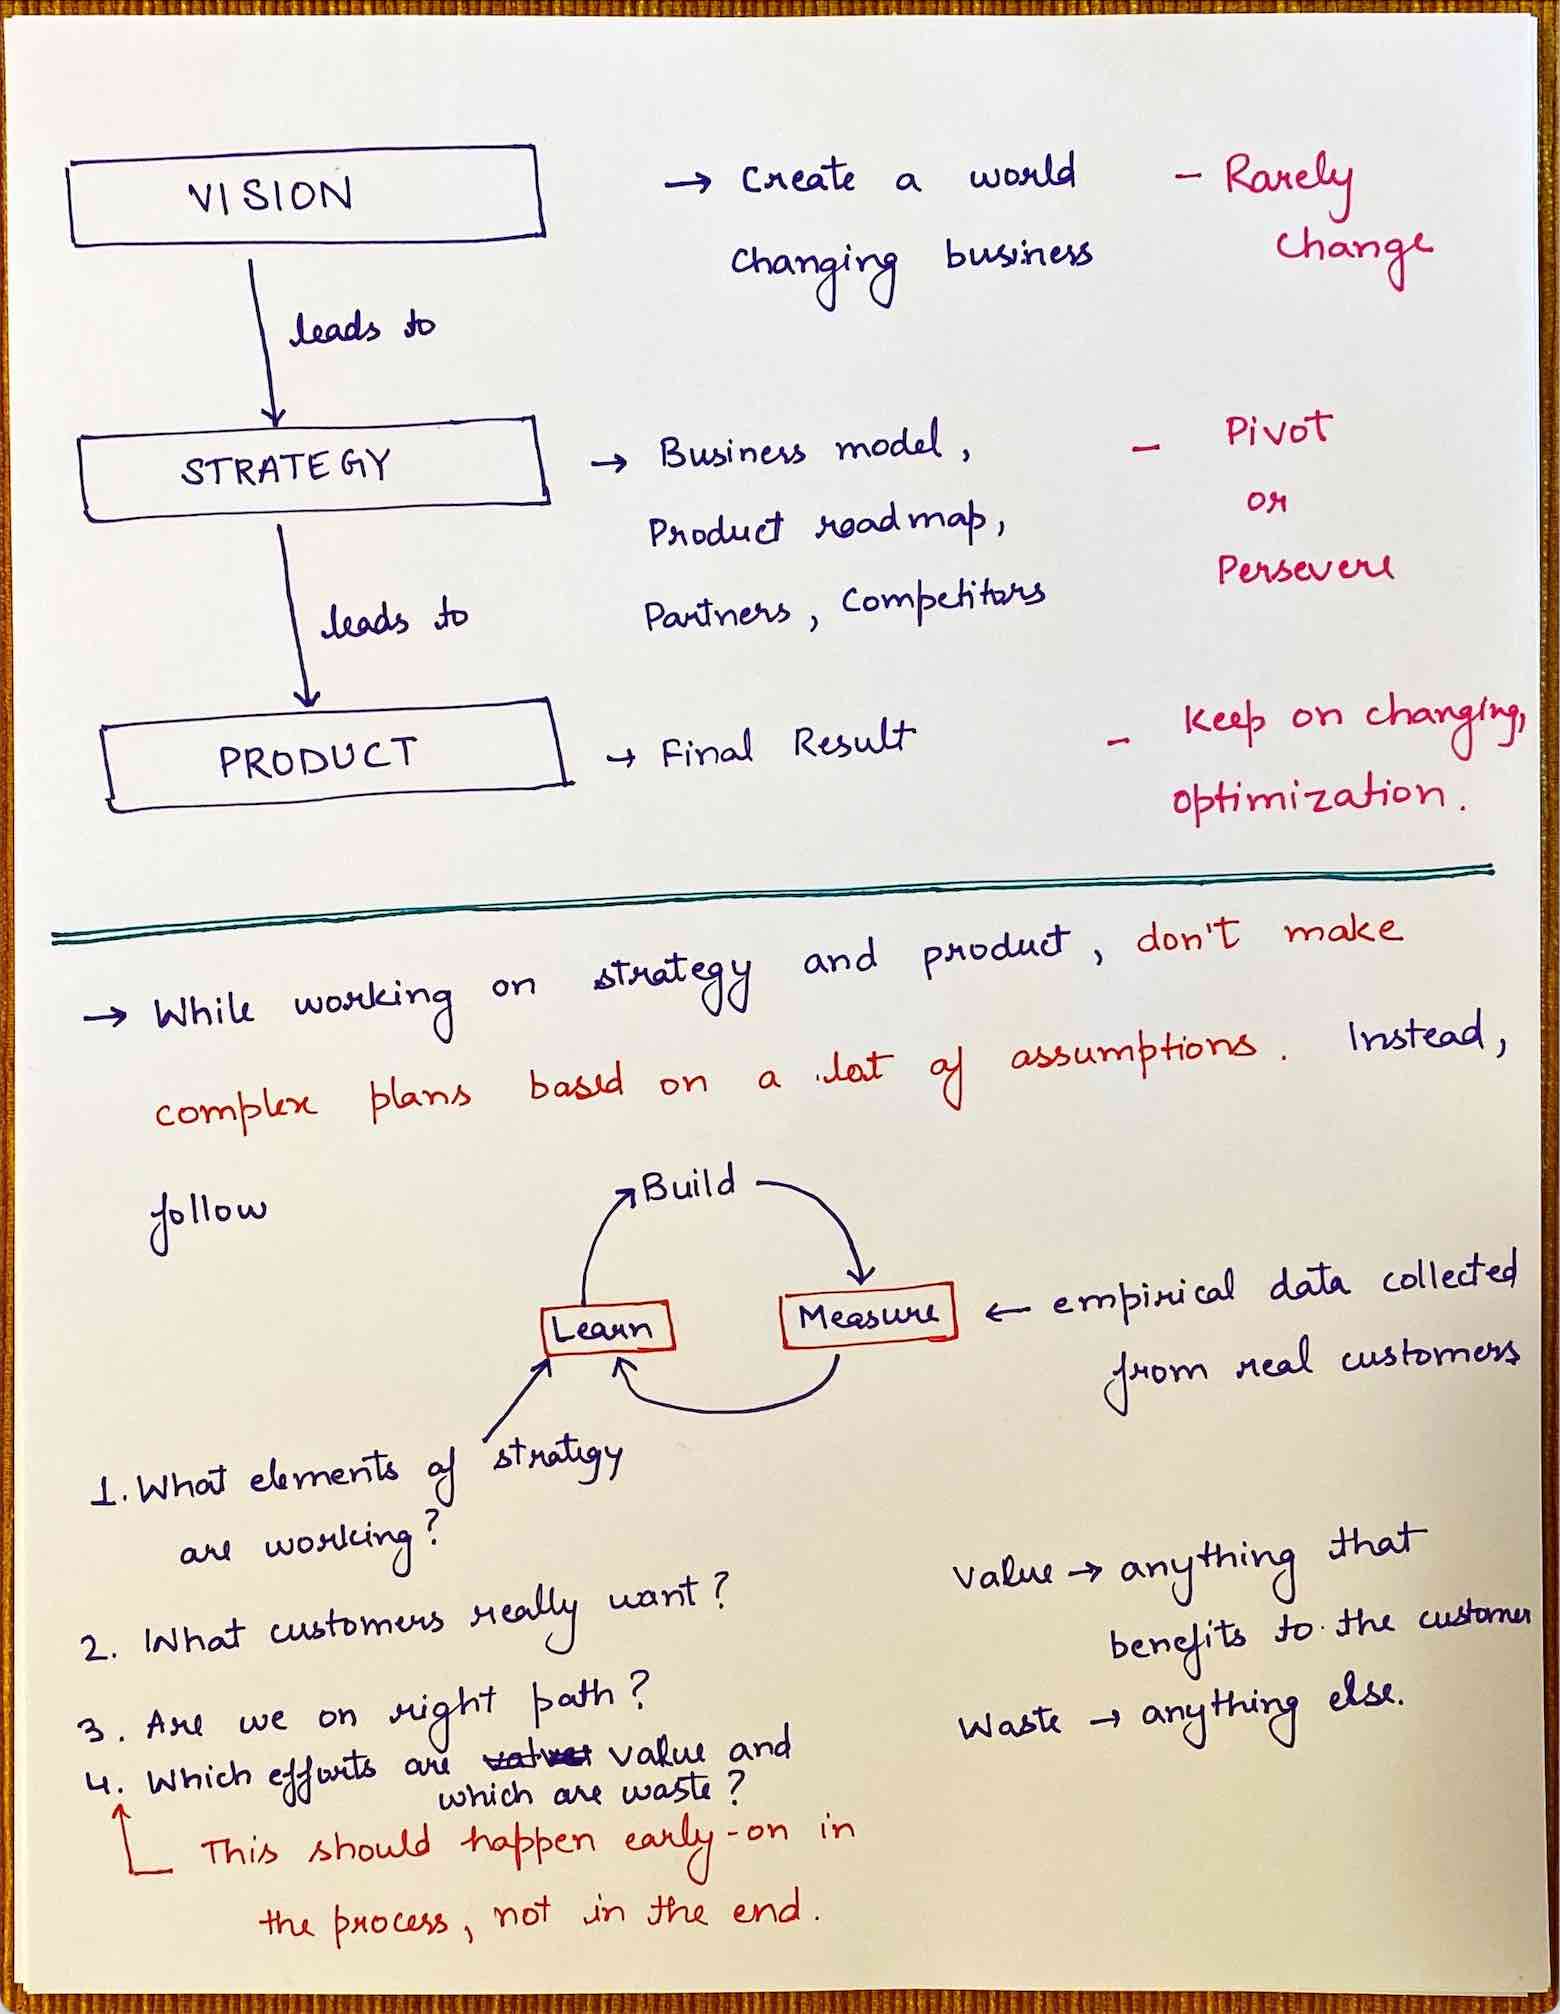 VISION → Create a world - Rarely
changing business change
leads to
STRATEGY → Business model, - Pivot
Product roadmap, or
Partners, Competitors Persevere
leads to
PRODUCT → Final Result - Keep on changing,
optimization.
→ While working on strategy and product, don't make
complex plans based on a lot of assumptions. Instead,
follow
Build
Learn
Measure ← empirical data collected
from real customers
1. What elements of strategy
are working?
2. What customers really want?
3. Are we on right path?
4. Which efforts are value and
which are waste?
This should happen early-on in
the process, not in the end.
Value → anything that
benefits to the customer
Waste → anything else.